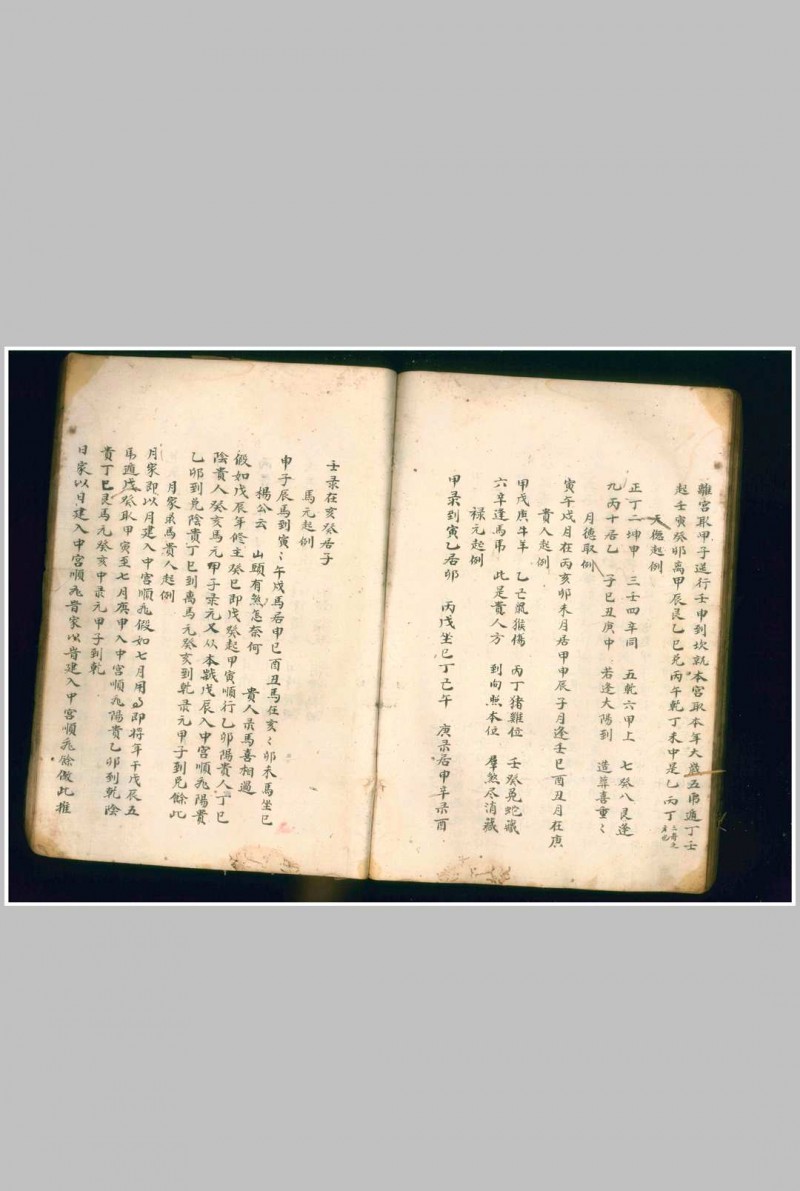 離宮取甲子送行壬申到坎就本宮取本年大歲五帍遁丁壬
起壬寅癸卯離甲辰艮乙巳兑丙午乾丁未中是乙丙丁
天德起例
正丁二坤甲 三壬四辛同 五乾六甲上 七癸八艮逢
九丙十居乙 子巳丑庚中 若逢大陽到 造葬喜重〻
月德取例
寅午戌月在丙亥卯未月居甲申辰子月逢壬巳酉丑月在庚
貴人起例
甲戊庚牛羊 乙己鼠猴傷 丙丁猪雞位 壬癸兔蛇藏
六辛逢馬帍 此是貴人方 到向照本位 羣煞尽消藏
禄元起例
甲彔到寅乙居卯 丙戊坐巳丁己午 庚彔居申辛彔酉
壬彔在亥癸居子
馬元起例
申子辰馬到寅〻午戌馬居申巳酉丑馬在亥〻卯未馬坐巳
楊公云 山頭有煞怎奈何 貴人彔馬喜相過
假如戊辰年修主癸巳即戊癸起甲寅順行乙卯陽貴人丁巳
陰貴人癸亥馬元甲子彔元又从本歲戊辰入中宮順飛陽貴
乙卯到兑陰貴丁巳到离馬元癸亥到乾彔元甲子到兑餘此
月家彔馬貴人起例
月家即以月建入中宮順飛假如七月用事即将年干戊辰五
帍遁戊癸取甲寅至七月庚申入中宮順飛陽貴乙卯到乾陰
貴丁巳艮馬元癸亥中彔元甲子到乾
日家以日建入中宮順飛旹家以旹建入中宮順飛餘倣此推